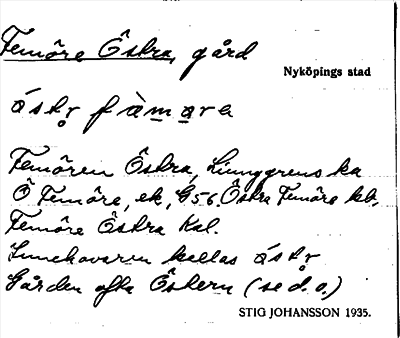 Femöre Östra, gård
Nyköpings stad
ást r̥ fàmara
Femören Östra, Liunggrenska
Ö Femöre, ek, G56. Östra Femöre kb,
Femöre Östra Kal.
Innehavaren kallas ást r̥
Gården ofta Östern (se d. o.)
STIG JOHANSSON 1935.